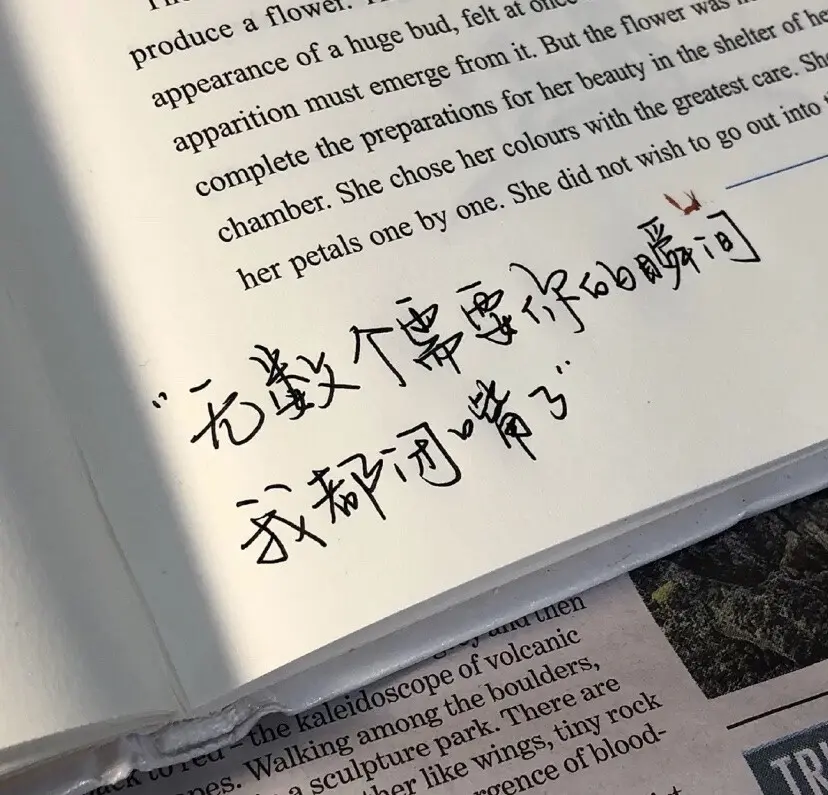 produce a flower.
appearance of a huge bud, felt at once
apparition must emerge from it. But the flower was
complete the preparations for her beauty in the shelter of
chamber. She chose her colours with the greatest care. She
her petals one by one. She did not wish to go out into
“无数个需要你的瞬间
我都闭嘴了”
and then
to red – the kaleidoscope of volcanic
Walking among the boulders,
a sculpture park. There are
like wings, tiny rock
of blood-